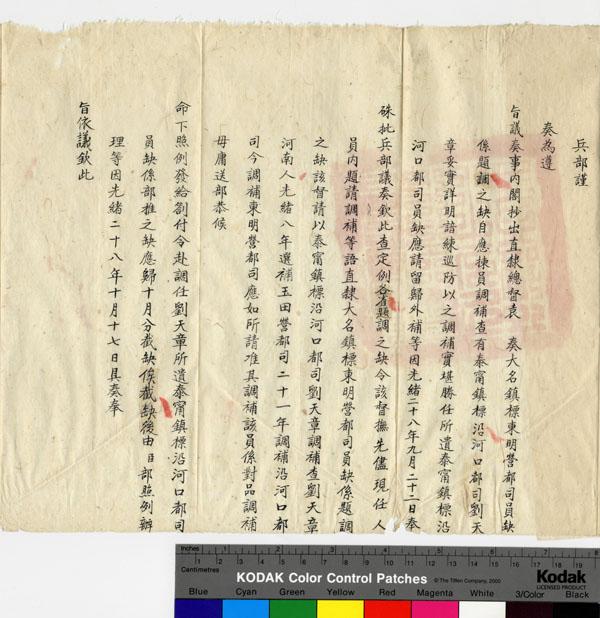 兵部謹
奏為遵
旨議奏事內閣抄出直隸總督袁 奏大名鎮標東明營都司員缺
係題調之缺自應揀員調補查有泰甯鎮標沿河口都司劉天
章妥實詳明諳練巡防以之調補實堪勝任所遺泰甯鎮標沿
河口都司員缺應請留歸外補等因光緒二十八年九月二十二日奉
硃批兵部議奏欽此查定例各省題調之缺令該督撫先儘現任人
員內題請調補等語直隸大名鎮標東明營都司員缺係題調
之缺該督請以泰甯鎮標沿河口都司劉天章調補查劉天章
河南人光緒八年選補玉田營都司二十一年調補沿河口都
司今調補東明營都司應如所請准其調補該員係對品調補
毋庸送部恭候
命下照例發給劄付令赴調任劉天章所遺泰甯鎮標沿河口都司
員缺係部推之缺應歸十月分截缺俟截缺後由臣部照例辦
理等因光緒二十八年十月十七日具奏奉
旨依議欽此
Inches 1 2 3 4 5 6 7 8
Centimetres 1 2 3 4 5 6 7 8 9 10 11 12 13 14 15 16 17 18 19
KODAK Color Control Patches
© The Tiffen Company, 2000
Kodak
LICENSED PRODUCT
Blue Cyan Green Yellow Red Magenta White 3/Color Black